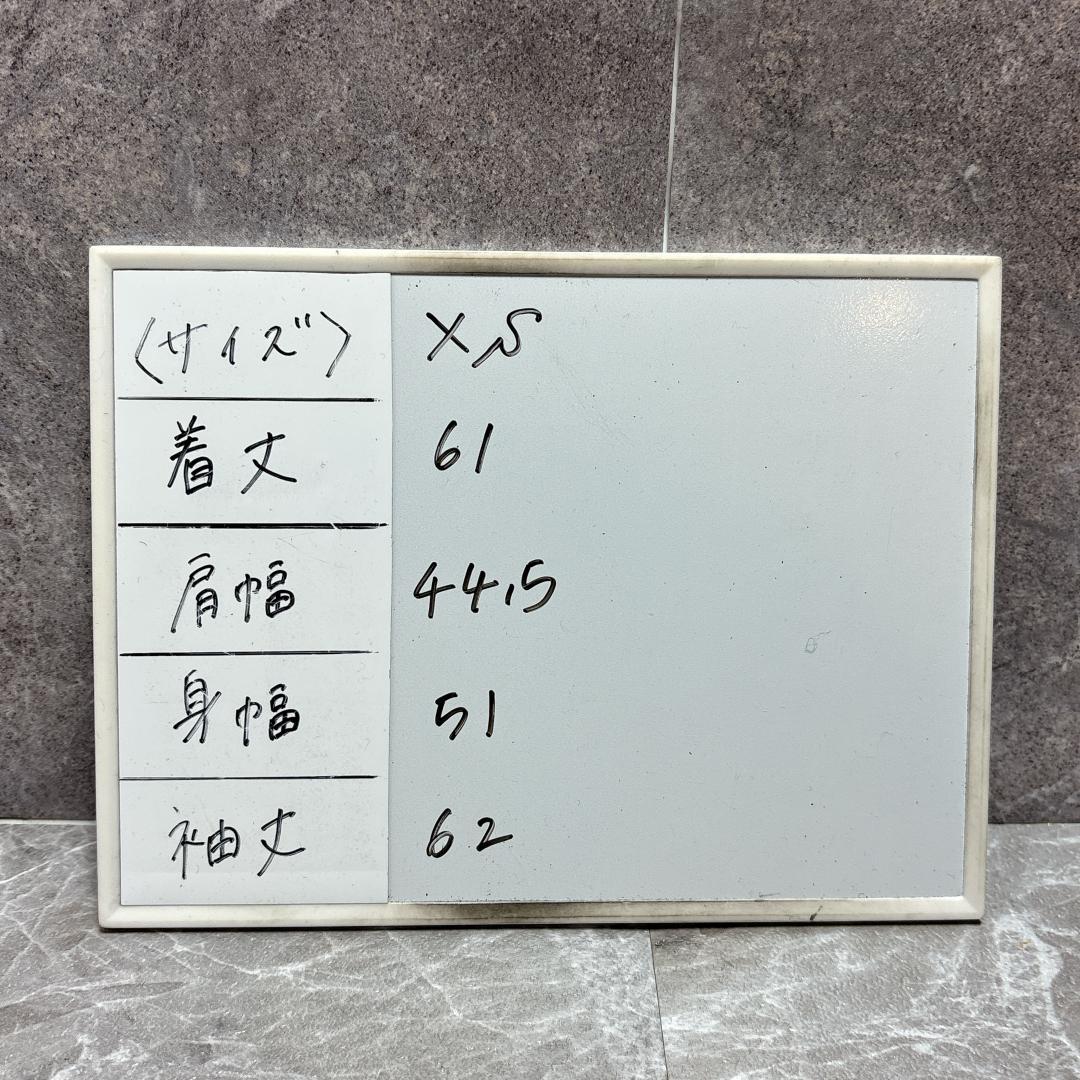 〈サイズ〉 XS
着丈 61
肩幅 44.5
身幅 51
袖丈 62